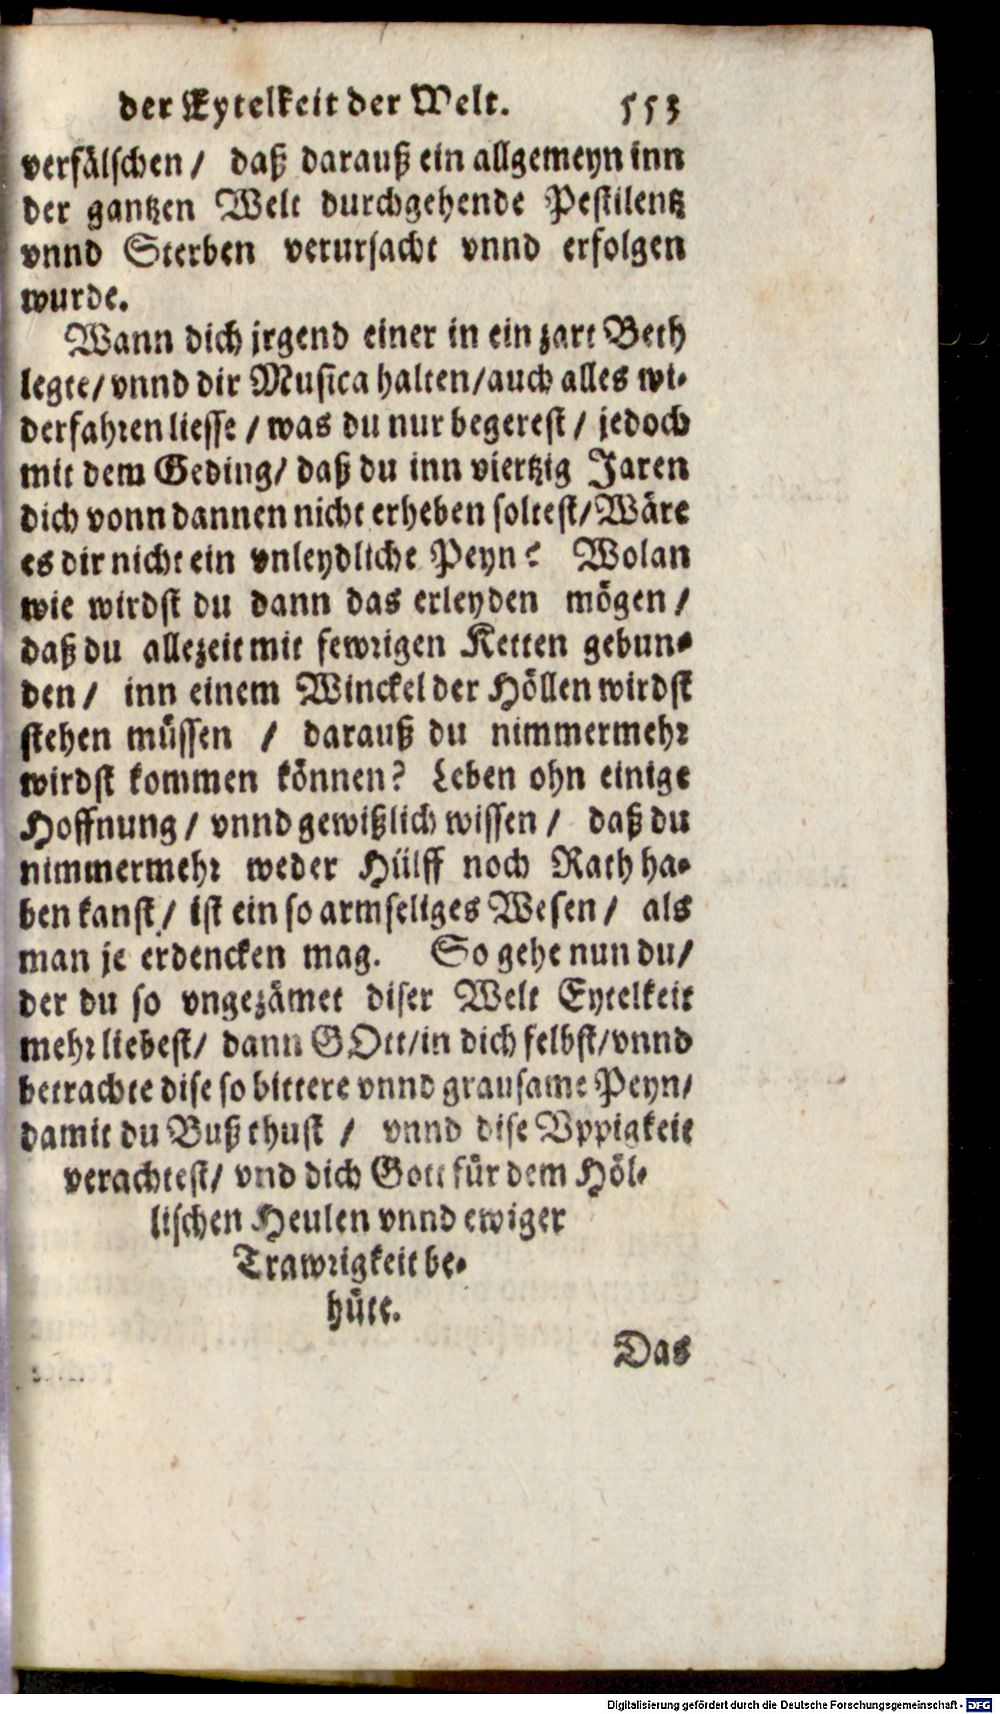 der Eytelkeit der Welt. 553
verfälschen / daß darauß ein allgemeyn inn
der gantzen Welt durchgehende Pestilentz
vnnd Sterben verursacht vnnd erfolgen
wurde.
Wann dich jrgend einer in ein zart Beth
legte / vnnd dir Musica halten / auch alles wi-
derfahren liesse / was du nur begerest / jedoch
mit dem Geding / daß du inn viertzig Jaren
dich vonn dannen nicht erheben soltest / Wäre
es dir nicht ein vnleydliche Peyn? Wolan
wie wirdst du dann das erleyden mögen /
daß du allezeit mit fewrigen Ketten gebun-
den / inn einem Winckel der Höllen wirdst
stehen müssen / darauß du nimmermehr
wirdst kommen können? Leben ohn einige
Hoffnung / vnnd gewißlich wissen / daß du
nimmermehr weder Hülff noch Rath ha-
ben kanst / ist ein so armseliges Wesen / als
man je erdencken mag. So gehe nun du /
der du so vngezämet diser Welt Eytelkeit
mehr liebest / dann GOtt / in dich selbst / vnnd
betrachte dise so bittere vnnd grausame Peyn /
damit du Buß thust / vnnd dise Vppigkeit
verachtest / vnd dich Gott für dem Höl-
lischen Heulen vnnd ewiger
Trawrigkeit be-
hüte.
Das
Digitalisierung gefördert durch die Deutsche Forschungsgemeinschaft - DFG